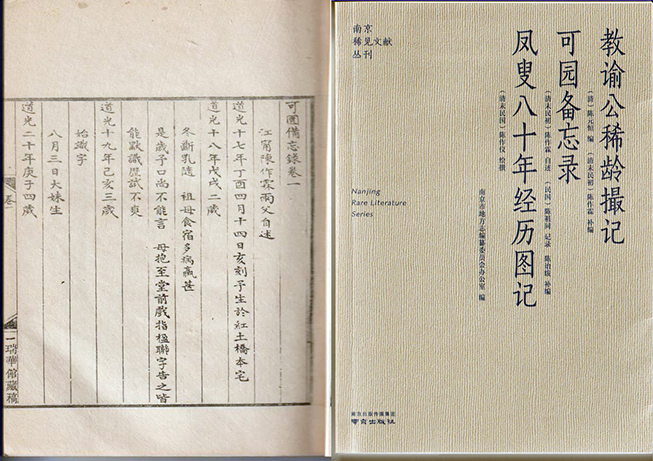 可園備忘錄卷一
江甯陳作霖雨父自述
道光十七年丁酉四月十四日亥刻予生於紅土橋本宅
道光十八年戊戌二歲
冬斷乳隨 祖母食宿多病羸甚
是歲予口尚不能言 母抱至堂前戲指楹聯字告之皆
能默識與試不爽
道光十九年己亥三歲
始識字
八月三日大妹生
道光二十年庚子四歲
卷一
一瑞華館藏稿
南京
稀见文献
丛刊
教谕公稀龄撮记
(清)陈元恒 编 (清末民初)陈作霖 补编
可园备忘录
(清末民初)陈作霖 自述 (民国)陈祖同 记录 陈诒绂 补编
凤叟八十年经历图记
(清末民国)陈作仪 绘撰
Nanjing
Rare Literature
Series
南京市地方志编纂委员会办公室 编
南京出版传媒集团
南京出版社